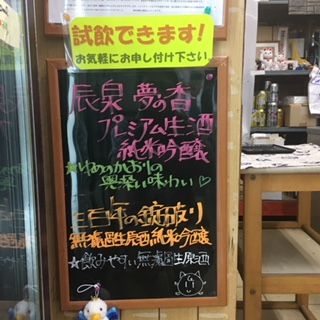 試飲できます!
お気軽にお申し付け下さい
辰泉 夢の香
プレミアム生酒
純米吟醸
★ゆめのかおりの
奥深い味わい♡
三百年の掟破り
無濾過生原酒純米吟醸
★飲みやすい無濾過生原酒